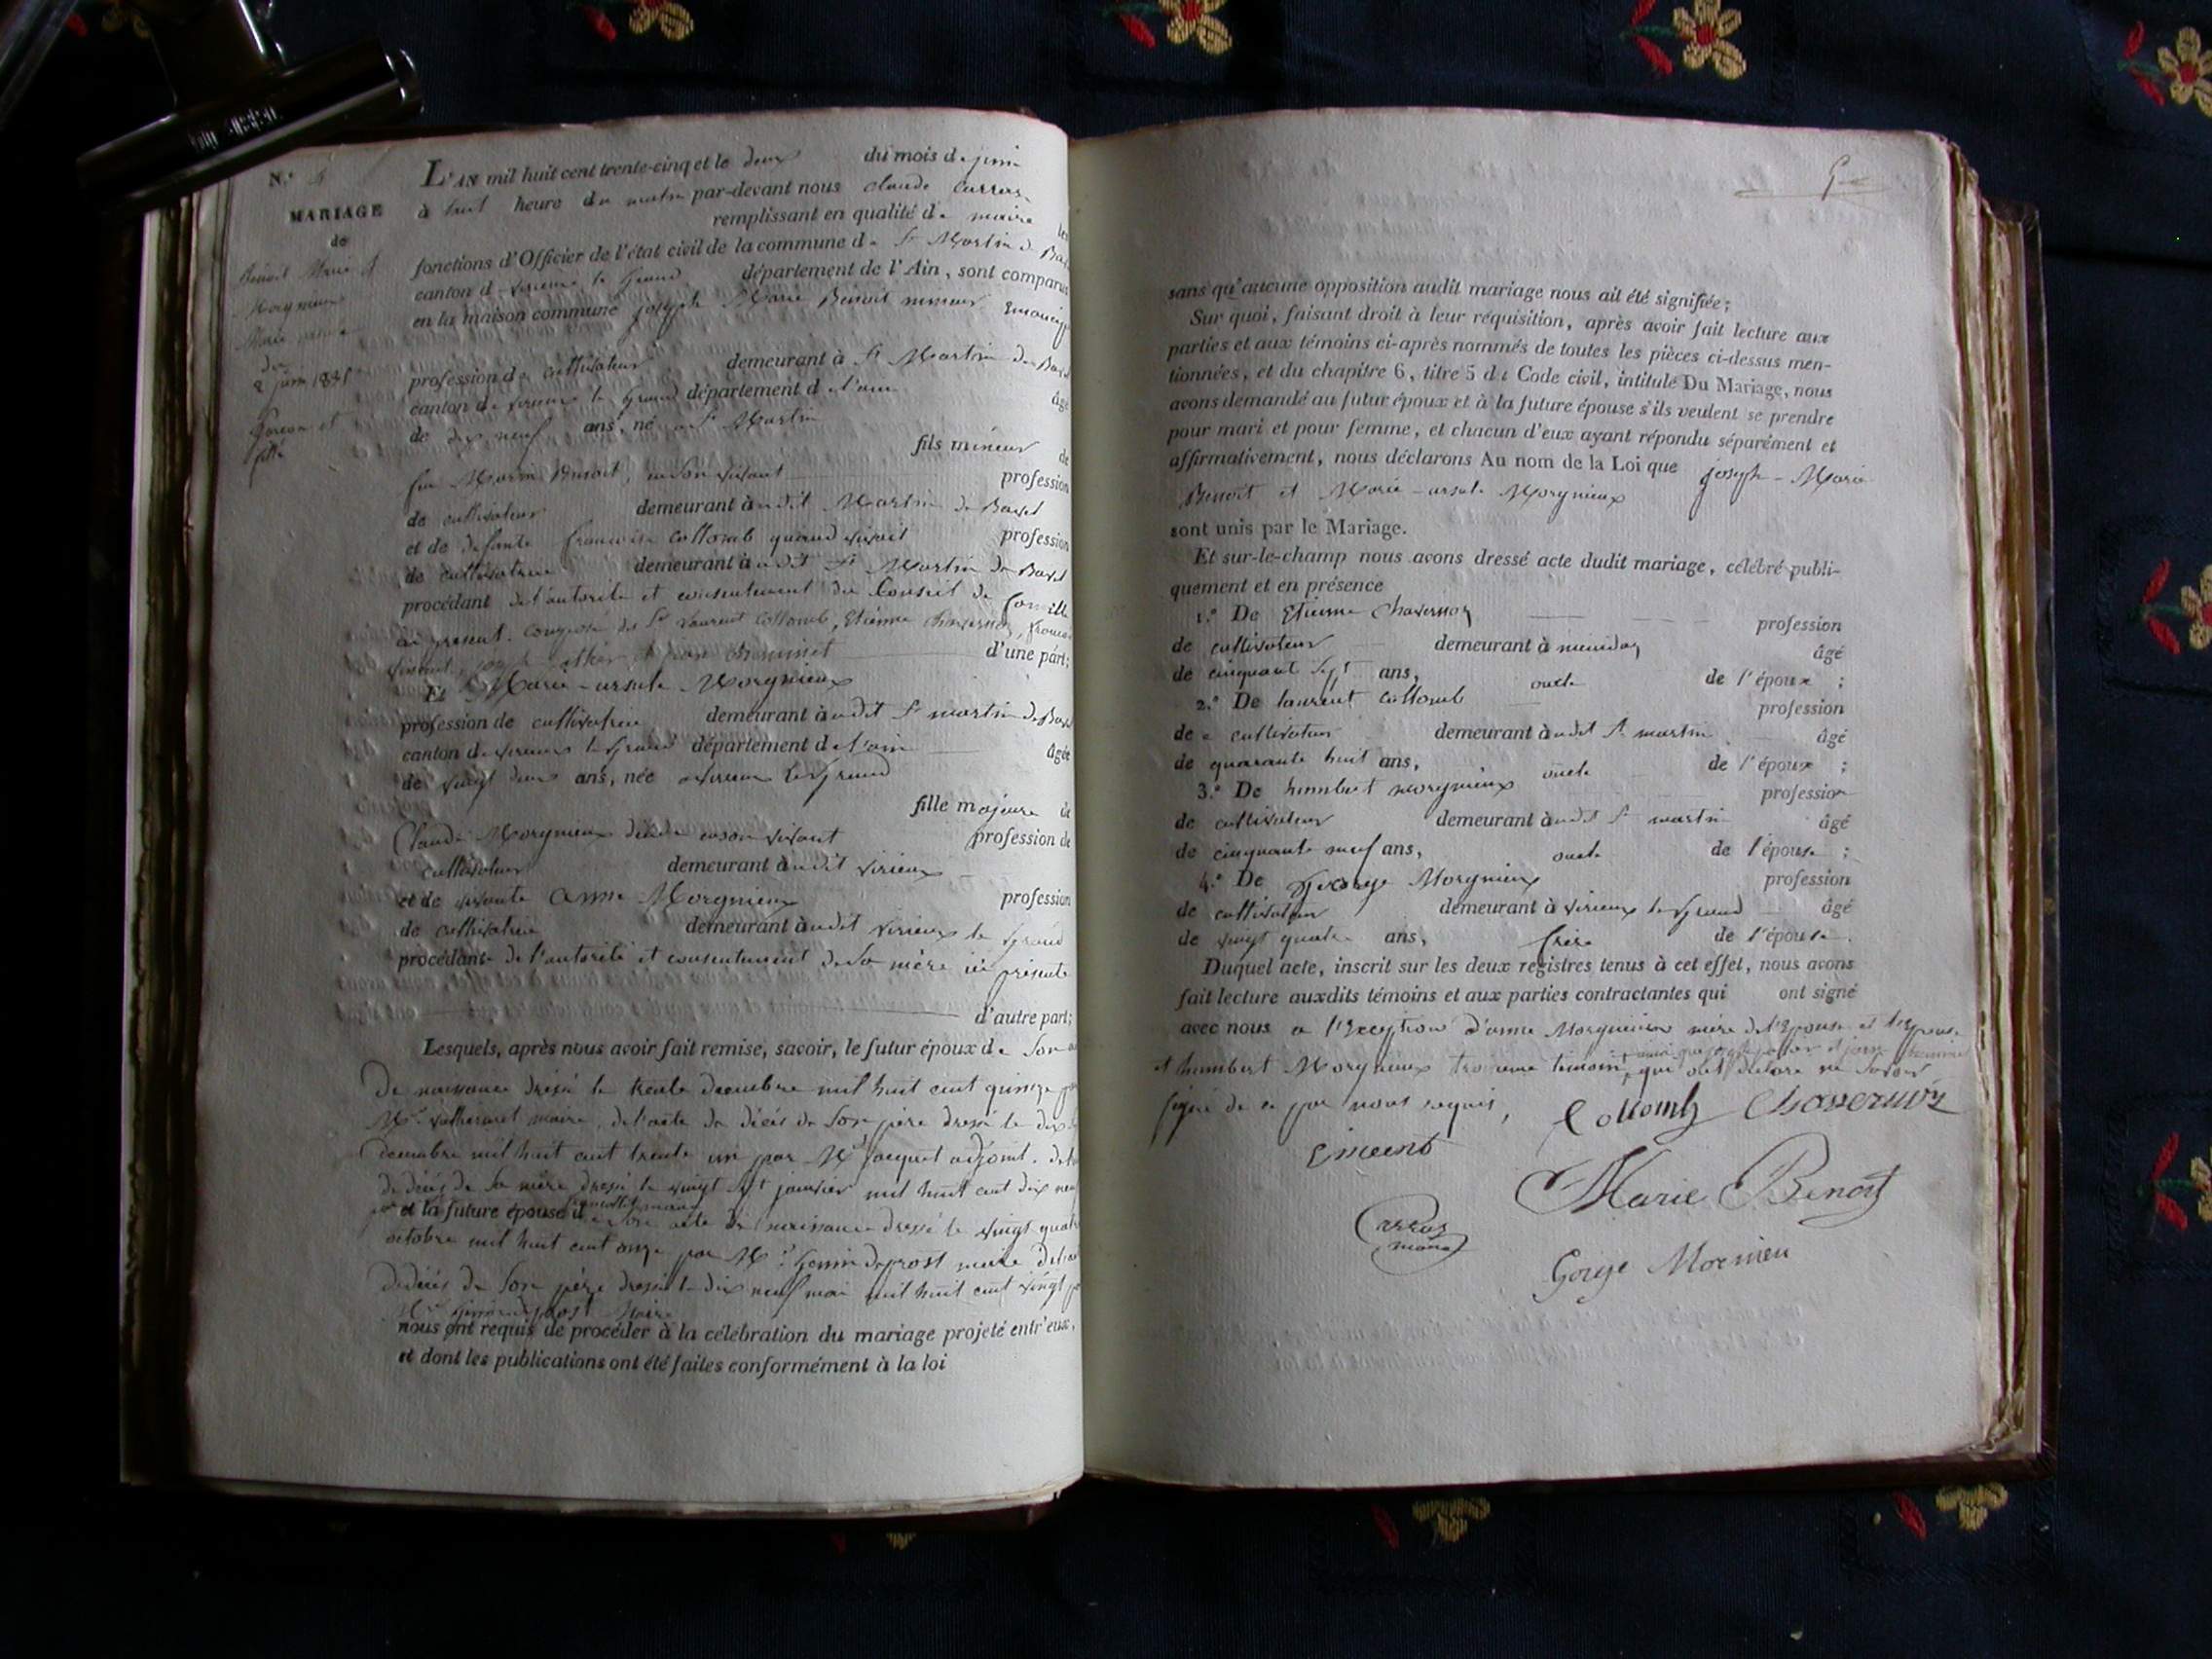 N.°
L'AN mil huit cent trente-cinq et le deux du mois de juin
MARIAGE
à huit heure du matin par-devant nous claude Carras
de
remplissant en qualité de maire les
Benoit Marie et
fonctions d'Officier de l'état civil de la commune de St Martin de Bavel
Morgnieux
canton de virieux le Grand département de l'Ain, sont comparus
Marie
en la maison commune joseph Marie Benoit mineur
du
profession de cultivateur demeurant à St Martin de Bavel
2 juin 1835
canton de virieux le Grand département de l'ain âgé
Garcon et
de dix neuf ans, né à St Martin
fille
fils mineur de
feu Marin Benoit, en son vivant profession
de cultivateur demeurant à udit Martin de Bavel
et de defunte francoise Collomb quand vivoit profession
de cultivatrice demeurant à udit St Martin de Bavel
procédant de l'autorité et consentement du Conseil de famille
ici présent. composé des Sr Laurent Collomb, Etienne
d'une part;
Et Marie-ursule Morgnieux
profession de cultivatrice demeurant à udit St martin de Bavel
canton de virieux le Grand département de l'ain âgée
de vingt deux ans, née à virieux le Grand
fille majeure de
Claude Morgnieux en son vivant profession de
cultivateur demeurant à udit virieux
et de vivante Anne Morgnieux profession
de cultivatrice demeurant à udit virieux le Grand
procédant de l'autorité et consentement de sa mère ici présente
d'autre part;
Lesquels, après nous avoir fait remise, savoir, le futur époux de son
de naissance dressé le trente decembre mil huit cent quinze
maire, de l'acte de décès de son père dressé le dix
decembre mil huit cent trente un par Mr jacquet adjoint.
de décès de sa mère dressé le vingt sept janvier mil huit cent dix neuf
et la future épouse de son acte de naissance dressé le vingt quatre
octobre mil huit cent onze par Mr maire
de décès de son père dressé le dix neuf mai mil huit cent vingt
maire
nous ont requis de procéder à la célébration du mariage projeté entr'eux,
et dont les publications ont été faites conformément à la loi
sans qu'aucune opposition audit mariage nous ait été signifiée;
Sur quoi, faisant droit à leur réquisition, après avoir fait lecture aux
parties et aux témoins ci-après nommés de toutes les pièces ci-dessus men-
tionnées, et du chapitre 6, titre 5 du Code civil, intitulé Du Mariage, nous
avons demandé au futur époux et à la future épouse s'ils veulent se prendre
pour mari et pour femme, et chacun d'eux ayant répondu séparément et
affirmativement, nous déclarons Au nom de la Loi que joseph-Marie
Benoit et Marie-ursule Morgnieux
sont unis par le Mariage.
Et sur-le-champ nous avons dressé acte dudit mariage, célébré publi-
quement et en présence
1.° De Etienne Chavernoz profession
de cultivateur demeurant à âgé
de cinquant sept ans, oncle de l'époux ;
2.° De laurent Collomb profession
de cultivateur demeurant à udit St martin âgé
de quarante huit ans, oncle de l'époux ;
3.° De humbert morgnieux profession
de cultivateur demeurant à udit St martin âgé
de cinquante neuf ans, oncle de l'épouse ;
4.° De George Morgnieux profession
de cultivateur demeurant à virieux le Grand âgé
de vingt quatre ans, frère de l'épouse.
Duquel acte, inscrit sur les deux registres tenus à cet effet, nous avons
fait lecture auxdits témoins et aux parties contractantes qui ont signé
avec nous a l'Exception d'anne Morgnieux mère de l'Epouse et l'Epouse
et humbert Morgnieux troisieme temoin, qui ont declaré ne savoir
signé de ce par nous requis, Collomb Chavernoz
Marie Benoit
Carras
maire
Gorge Mornieu